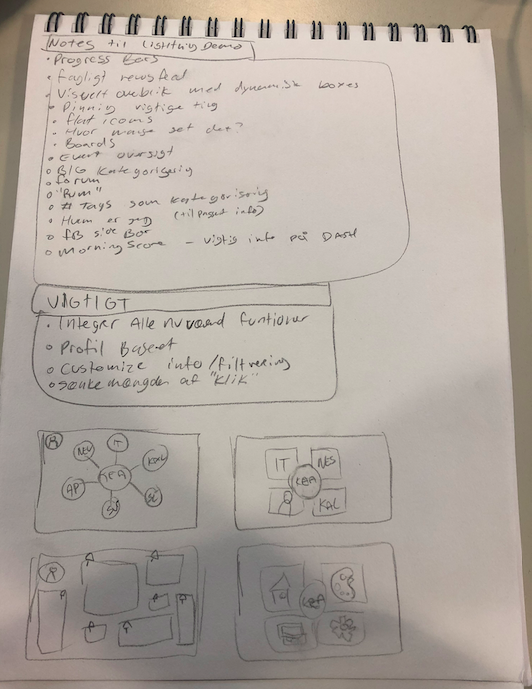 Notes til Lightning Demo
• Progress Bars
• Fagligt newsfeed
• Visuelt overblik med dynamisk boxes
• Pinning vigtige ting
• flat icons
• Hvor mange set det?
• Boards
• Event oversigt
• BIG Kategorisering
• forum
• "Rum"
• # Tags som kategorisering
• Hvem er jeg (tilpasset info)
• FB side Bar
• MorningScore - vigtig info på DASH
VIGTIGT
• Integrer Alle funtioner
• Profil Baseret
• Customize info/filtrering
• sænke mængden af "Klik"
IT
AP
IT
NES
KAL